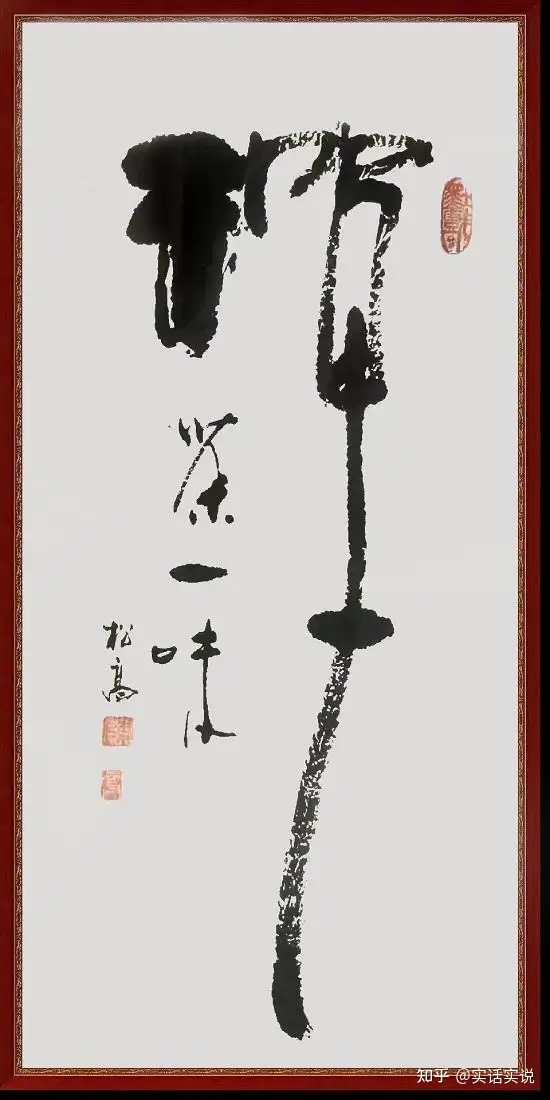 禅
茶一味
松高
知乎 @实话实说